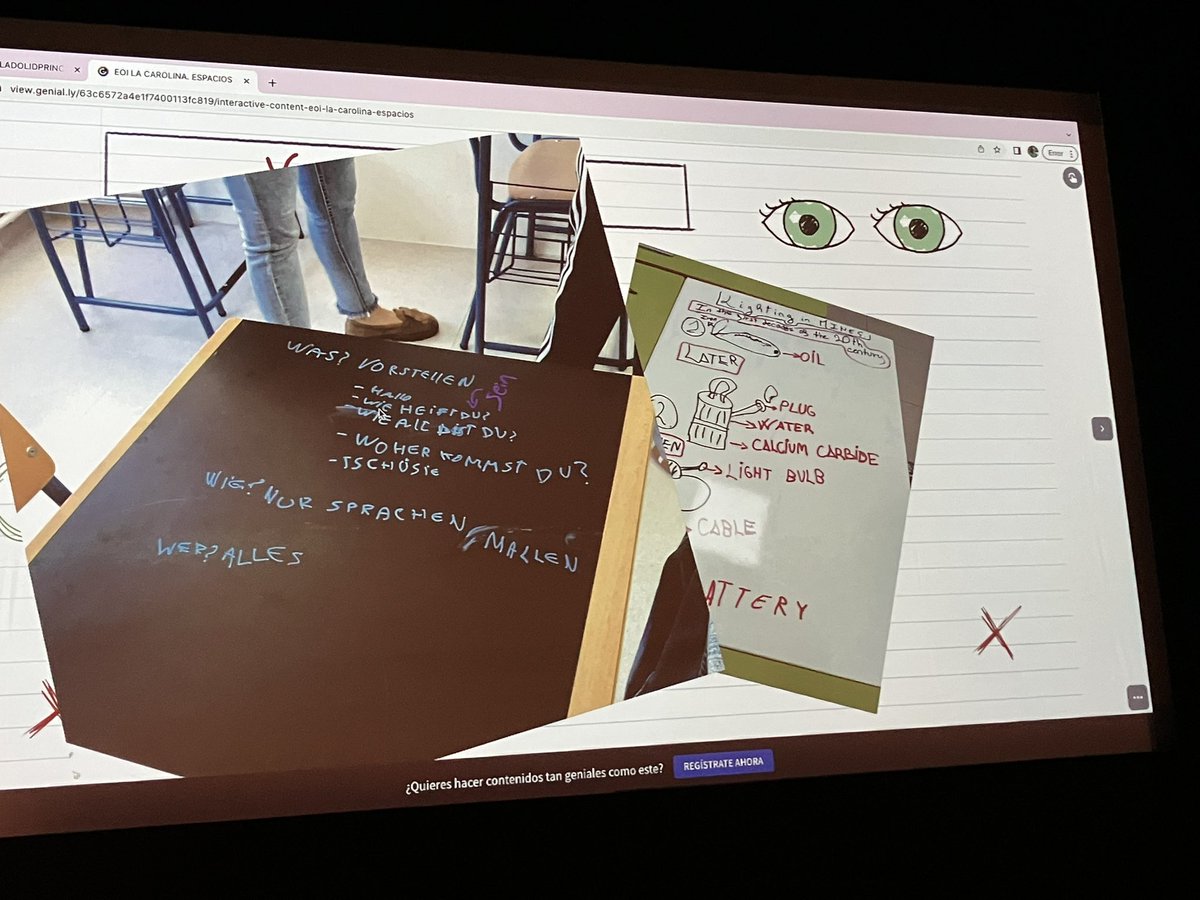 LADOLIDPRINC
EOI LA CAROLINA. ESPACIOS
view.genial.ly/63c6572a4e1f7400113fc819/interactive-content-eoi-la-carolina-espacios
Error
WAS? VORSTELLEN
- HALLO
sein
- WIE HEIßT DU?
- WIE ALT BIST DU?
- WOHER KOMMST DU?
- TSCHÜSIE
WIE? NUR SPRACHEN, MALLEN
WER? ALLES
Lighting in MINES
In the first decades of the 20th century
1
OIL
LATER
2
PLUG
WATER
CALCIUM CARBIDE
EN
LIGHT BULB
CABLE
ATTERY
¿Quieres hacer contenidos tan geniales como este?
REGÍSTRATE AHORA